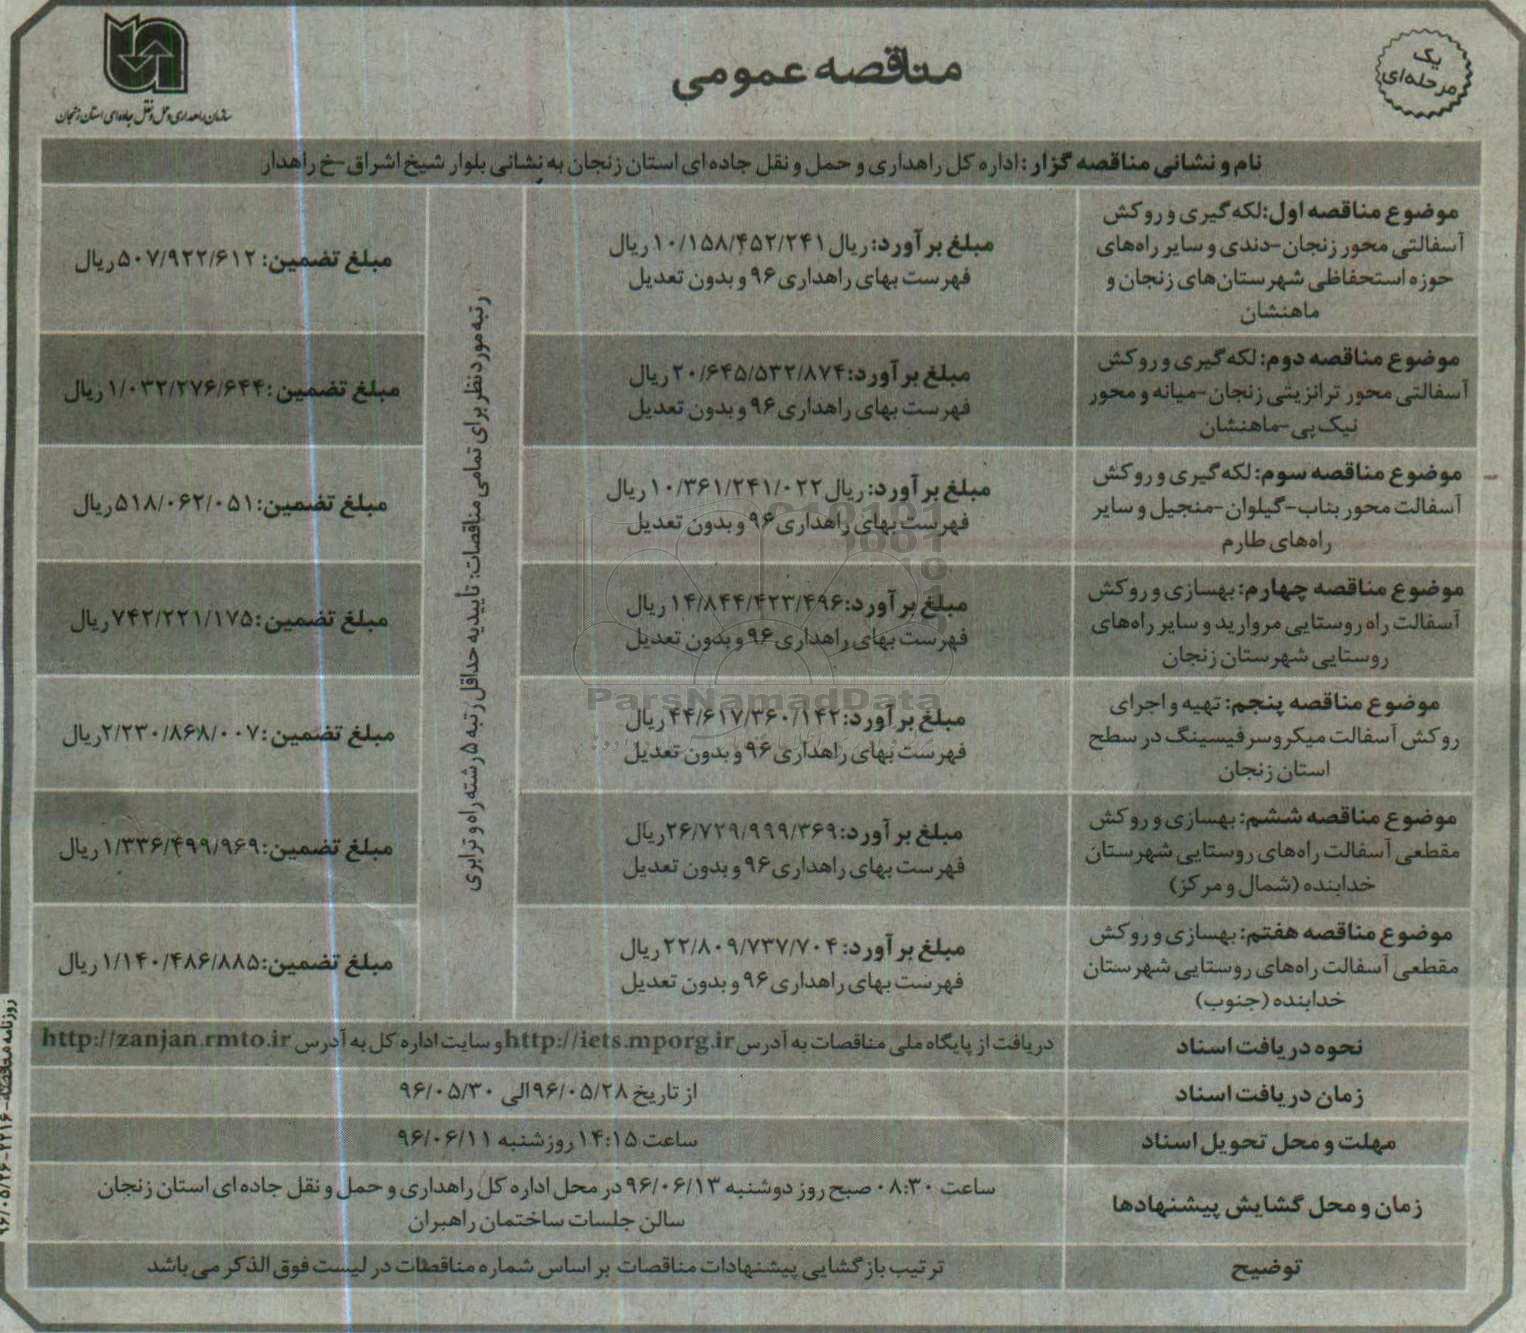 یک
مرحله‌ای
مناقصه عمومی
سازمان راهداری و حمل و نقل جاده‌ای استان زنجان
نام و نشانی مناقصه گزار: اداره کل راهداری و حمل و نقل جاده ای استان زنجان به نشانی بلوار شیخ اشراق-خ راهدار
موضوع مناقصه اول:لکه گیری و روکش
آسفالتی محور زنجان-دندی و سایر راه‌های
حوزه استحفاظی شهرستان‌های زنجان و
ماهنشان
مبلغ برآورد: ریال ۱۰/۱۵۸/۴۵۲/۲۴۱ ریال
فهرست بهای راهداری ۹۶ و بدون تعدیل
مبلغ تضمین: ۵۰۷/۹۲۲/۶۱۲ ریال
رتبه مورد نظر برای تمامی مناقصات: تاییدیه حداقل رتبه ۵ رشته راه و ترابری
موضوع مناقصه دوم: لکه گیری و روکش
آسفالتی محور ترانزیتی زنجان-میانه و محور
نیک پی-ماهنشان
مبلغ برآورد:۲۰/۶۴۵/۵۳۲/۸۷۴ ریال
فهرست بهای راهداری ۹۶ و بدون تعدیل
مبلغ تضمین:۱/۰۳۲/۲۷۶/۶۴۴ ریال
موضوع مناقصه سوم: لکه گیری و روکش
آسفالت محور بناب-گیلوان-منجیل و سایر
راه‌های طارم
مبلغ برآورد: ریال ۱۰/۳۶۱/۲۴۱/۰۲۲ ریال
فهرست بهای راهداری ۹۶ و بدون تعدیل
مبلغ تضمین:۵۱۸/۰۶۲/۰۵۱ ریال
موضوع مناقصه چهارم: بهسازی و روکش
آسفالت راه روستایی مروارید و سایر راه‌های
روستایی شهرستان زنجان
مبلغ برآورد:۱۴/۸۴۴/۴۲۳/۴۹۶ ریال
فهرست بهای راهداری ۹۶ و بدون تعدیل
مبلغ تضمین:۷۴۲/۲۲۱/۱۷۵ ریال
موضوع مناقصه پنجم: تهیه و اجرای
روکش آسفالت میکروسرفیسینگ در سطح
استان زنجان
مبلغ برآورد:۴۴/۶۱۷/۳۶۰/۱۴۲ ریال
فهرست بهای راهداری ۹۶ و بدون تعدیل
مبلغ تضمین:۲/۲۳۰/۸۶۸/۰۰۷ ریال
ParsNamadData
موضوع مناقصه ششم: بهسازی و روکش
مقطعی آسفالت راه‌های روستایی شهرستان
خدابنده (شمال و مرکز)
مبلغ برآورد:۲۶/۷۲۹/۹۹۹/۳۶۹ ریال
فهرست بهای راهداری ۹۶ و بدون تعدیل
مبلغ تضمین:۱/۳۳۶/۴۹۹/۹۶۹ ریال
موضوع مناقصه هفتم: بهسازی و روکش
مقطعی آسفالت راه‌های روستایی شهرستان
خدابنده (جنوب)
مبلغ برآورد:۲۲/۸۰۹/۷۳۷/۷۰۴ ریال
فهرست بهای راهداری ۹۶ و بدون تعدیل
مبلغ تضمین:۱/۱۴۰/۴۸۶/۸۸۵ ریال
نحوه دریافت اسناد
دریافت از پایگاه ملی مناقصات به آدرس http://iets.mporg.ir و سایت اداره کل به آدرس http://zanjan.rmto.ir
زمان دریافت اسناد
از تاریخ ۹۶/۰۵/۲۸ الی ۹۶/۰۵/۳۰
مهلت و محل تحویل اسناد
ساعت ۱۴:۱۵ روز شنبه ۹۶/۰۶/۱۱
زمان و محل گشایش پیشنهادها
ساعت ۰۸:۳۰ صبح روز دوشنبه ۹۶/۰۶/۱۳ در محل اداره کل راهداری و حمل و نقل جاده ای استان زنجان
سالن جلسات ساختمان راهبران
توضیح
ترتیب بازگشایی پیشنهادات مناقصات بر اساس شماره مناقصات در لیست فوق الذکر می باشد
روزنامه مناقصه-۲۲۱۶-۹۶/۰۵/۲۶